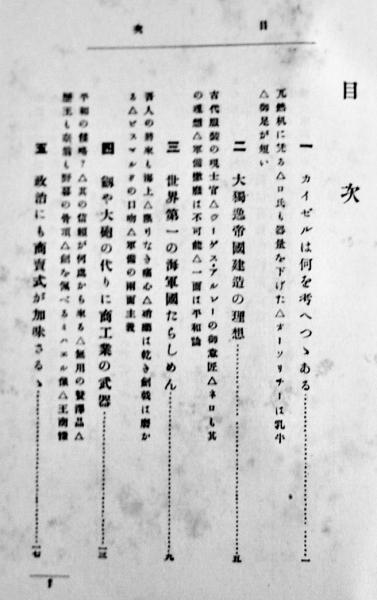 目次
目次
一 カイゼルは何を考へつゝある……一
兀然机に凭る△ロ氏も器量を下げた△オーソリチーは乳牛
△御足が短い
二 大獨逸帝國建造の理想……五
古代服裝の現士官△ジーゲスアルレーの御意匠△ネロも其
の理想△軍備撤廢は不可能△一面は平和論
三 世界第一の海軍國たらしめん……九
吾人の將來も海上△限りなき痛心△硝藥は乾き劍戟は磨か
る△ビスマルクの口吻△軍備の兩面主義
四 劍や大砲の代りに商工業の武器……一三
平和の侵略？△其の信賴が何處から來る△無用の贅澤品△
五 政治にも商賣式が加味さるゝ……一七